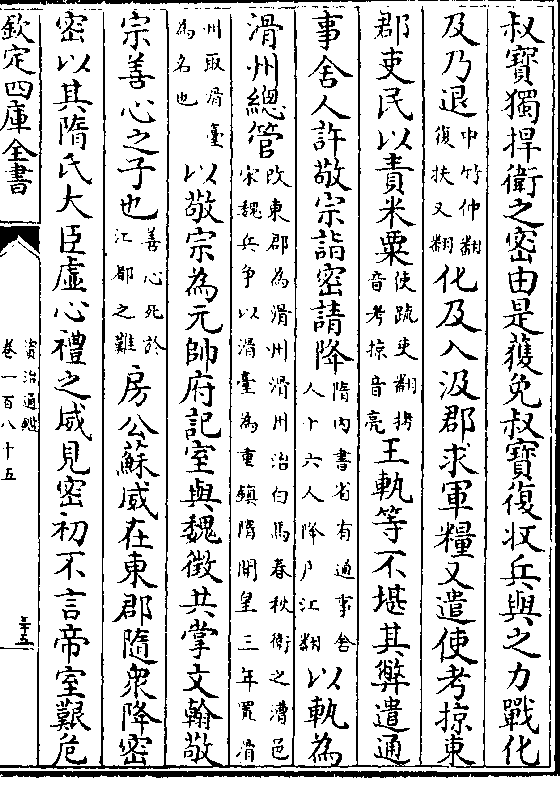 叔寶獨捍衛之密由是獲免叔寶復收兵與之力戰化
及乃退中竹仲翻復扶又翻化及入汲郡求軍糧又遣使考掠東
郡吏民以責米粟使疏吏翻拷音考掠音亮王軌等不堪其弊遣通
事舍人許敬宗詣密請降隋內書省有通事舍人十六人降戶江翻以軌為
滑州總管改東郡為滑州滑州治白馬春秋衛之漕邑宋魏兵爭以滑臺為重鎮隋開皇三年置滑
州取滑臺為名也以敬宗為元帥府記室與魏徵共掌文翰敬
宗善心之子也善心死於江都之難房公蘇威在東郡隨衆降密
密以其隋氏大臣虛心禮之威見密初不言帝室艱危
欽定四庫全書
資治通鑑
卷一百八十五
三十五